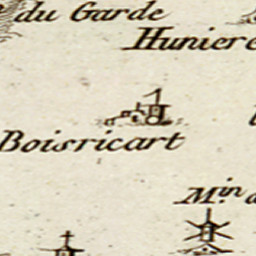 du Garde
Huniere
Boisricart
M.in